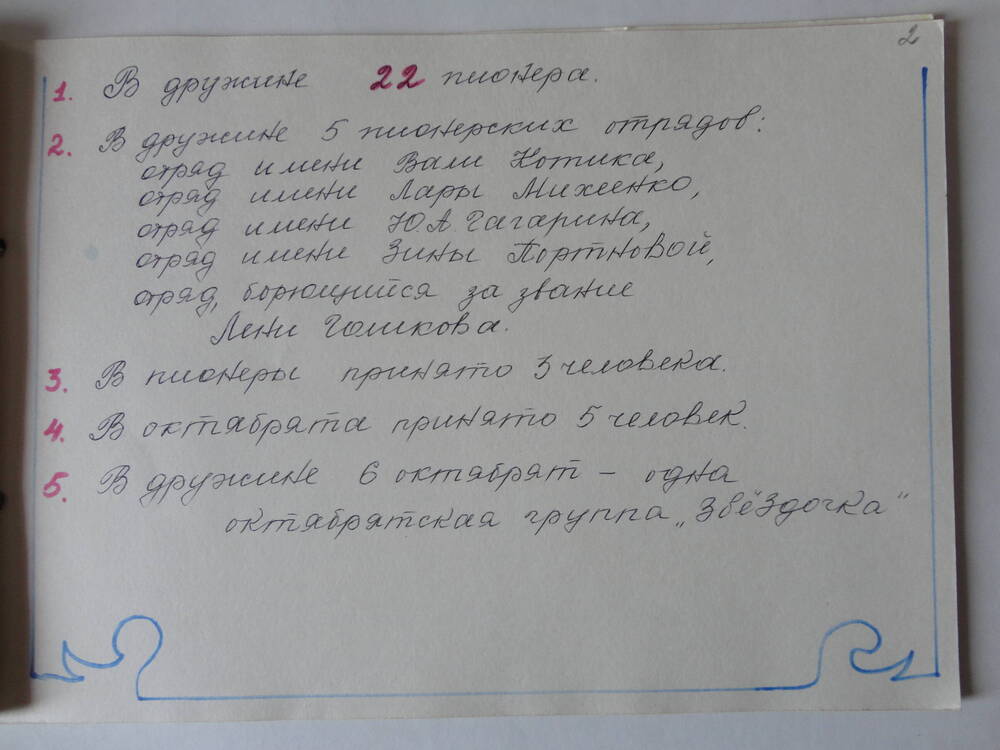 2
1. В дружине 22 пионера.
2. В дружине 5 пионерских отрядов:
отряд имени Вали Котика,
отряд имени Лары Михеенко,
отряд имени Ю.А. Гагарина,
отряд имени Зины Портновой,
отряд, борющийся за звание
Лени Голикова.
3. В пионеры принято 3 человека.
4. В октябрята принято 5 человек.
5. В дружине 6 октябрят – одна
октябрятская группа „Звёздочка"